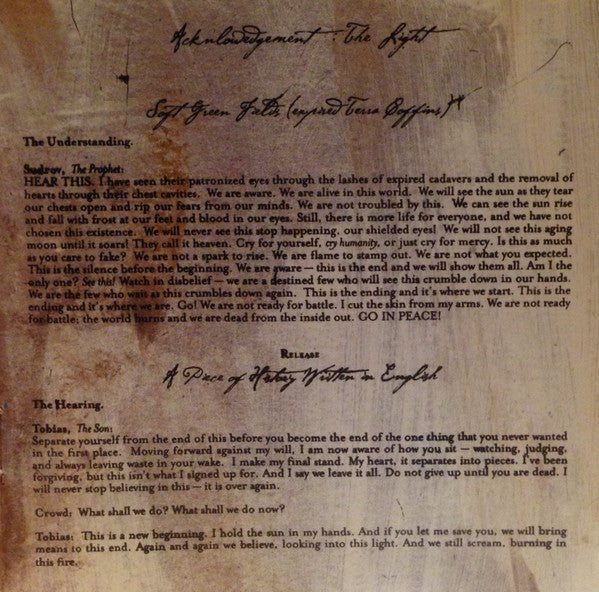 Acknlowedgement : The Light
Soft Green Fields (expired Terra Coffins)
The Understanding.
Sudrov, The Prophet:
HEAR THIS. I have seen their patronized eyes through the lashes of expired cadavers and the removal of
hearts through their chest cavities. We are aware. We are alive in this world. We will see the sun as they tear
our chests open and rip our fears from our minds. We are not troubled by this. We can see the sun rise
and fall with frost at our feet and blood in our eyes. Still, there is more life for everyone, and we have not
chosen this existence. We will never see this stop happening, our shielded eyes! We will not see this aging
moon until it soars! They call it heaven. Cry for yourself, cry humanity, or just cry for mercy. Is this as much
as you care to fake? We are not a spark to rise. We are flame to stamp out. We are not what you expected.
This is the silence before the beginning. We are aware — this is the end and we will show them all. Am I the
only one? See this! Watch in disbelief — we are a destined few who will see this crumble down in our hands.
We are the few who wait as this crumbles down again. This is the ending and it's where we start. This is the
ending and it's where we are. Go! We are not ready for battle. I cut the skin from my arms. We are not ready
for battle; the world burns and we are dead from the inside out. GO IN PEACE!
Release
A Piece of History Written in English
The Hearing.
Tobias, The Son:
Separate yourself from the end of this before you become the end of the one thing that you never wanted
in the first place. Moving forward against my will, I am now aware of how you sit — watching, judging,
and always leaving waste in your wake. I make my final stand. My heart, it separates into pieces. I've been
forgiving, but this isn't what I signed up for. And I say we leave it all. Do not give up until you are dead. I
will never stop believing in this — it is over again.
Crowd: What shall we do? What shall we do now?
Tobias: This is a new beginning. I hold the sun in my hands. And if you let me save you, we will bring
means to this end. Again and again we believe, looking into this light. And we still scream, burning in
this fire.